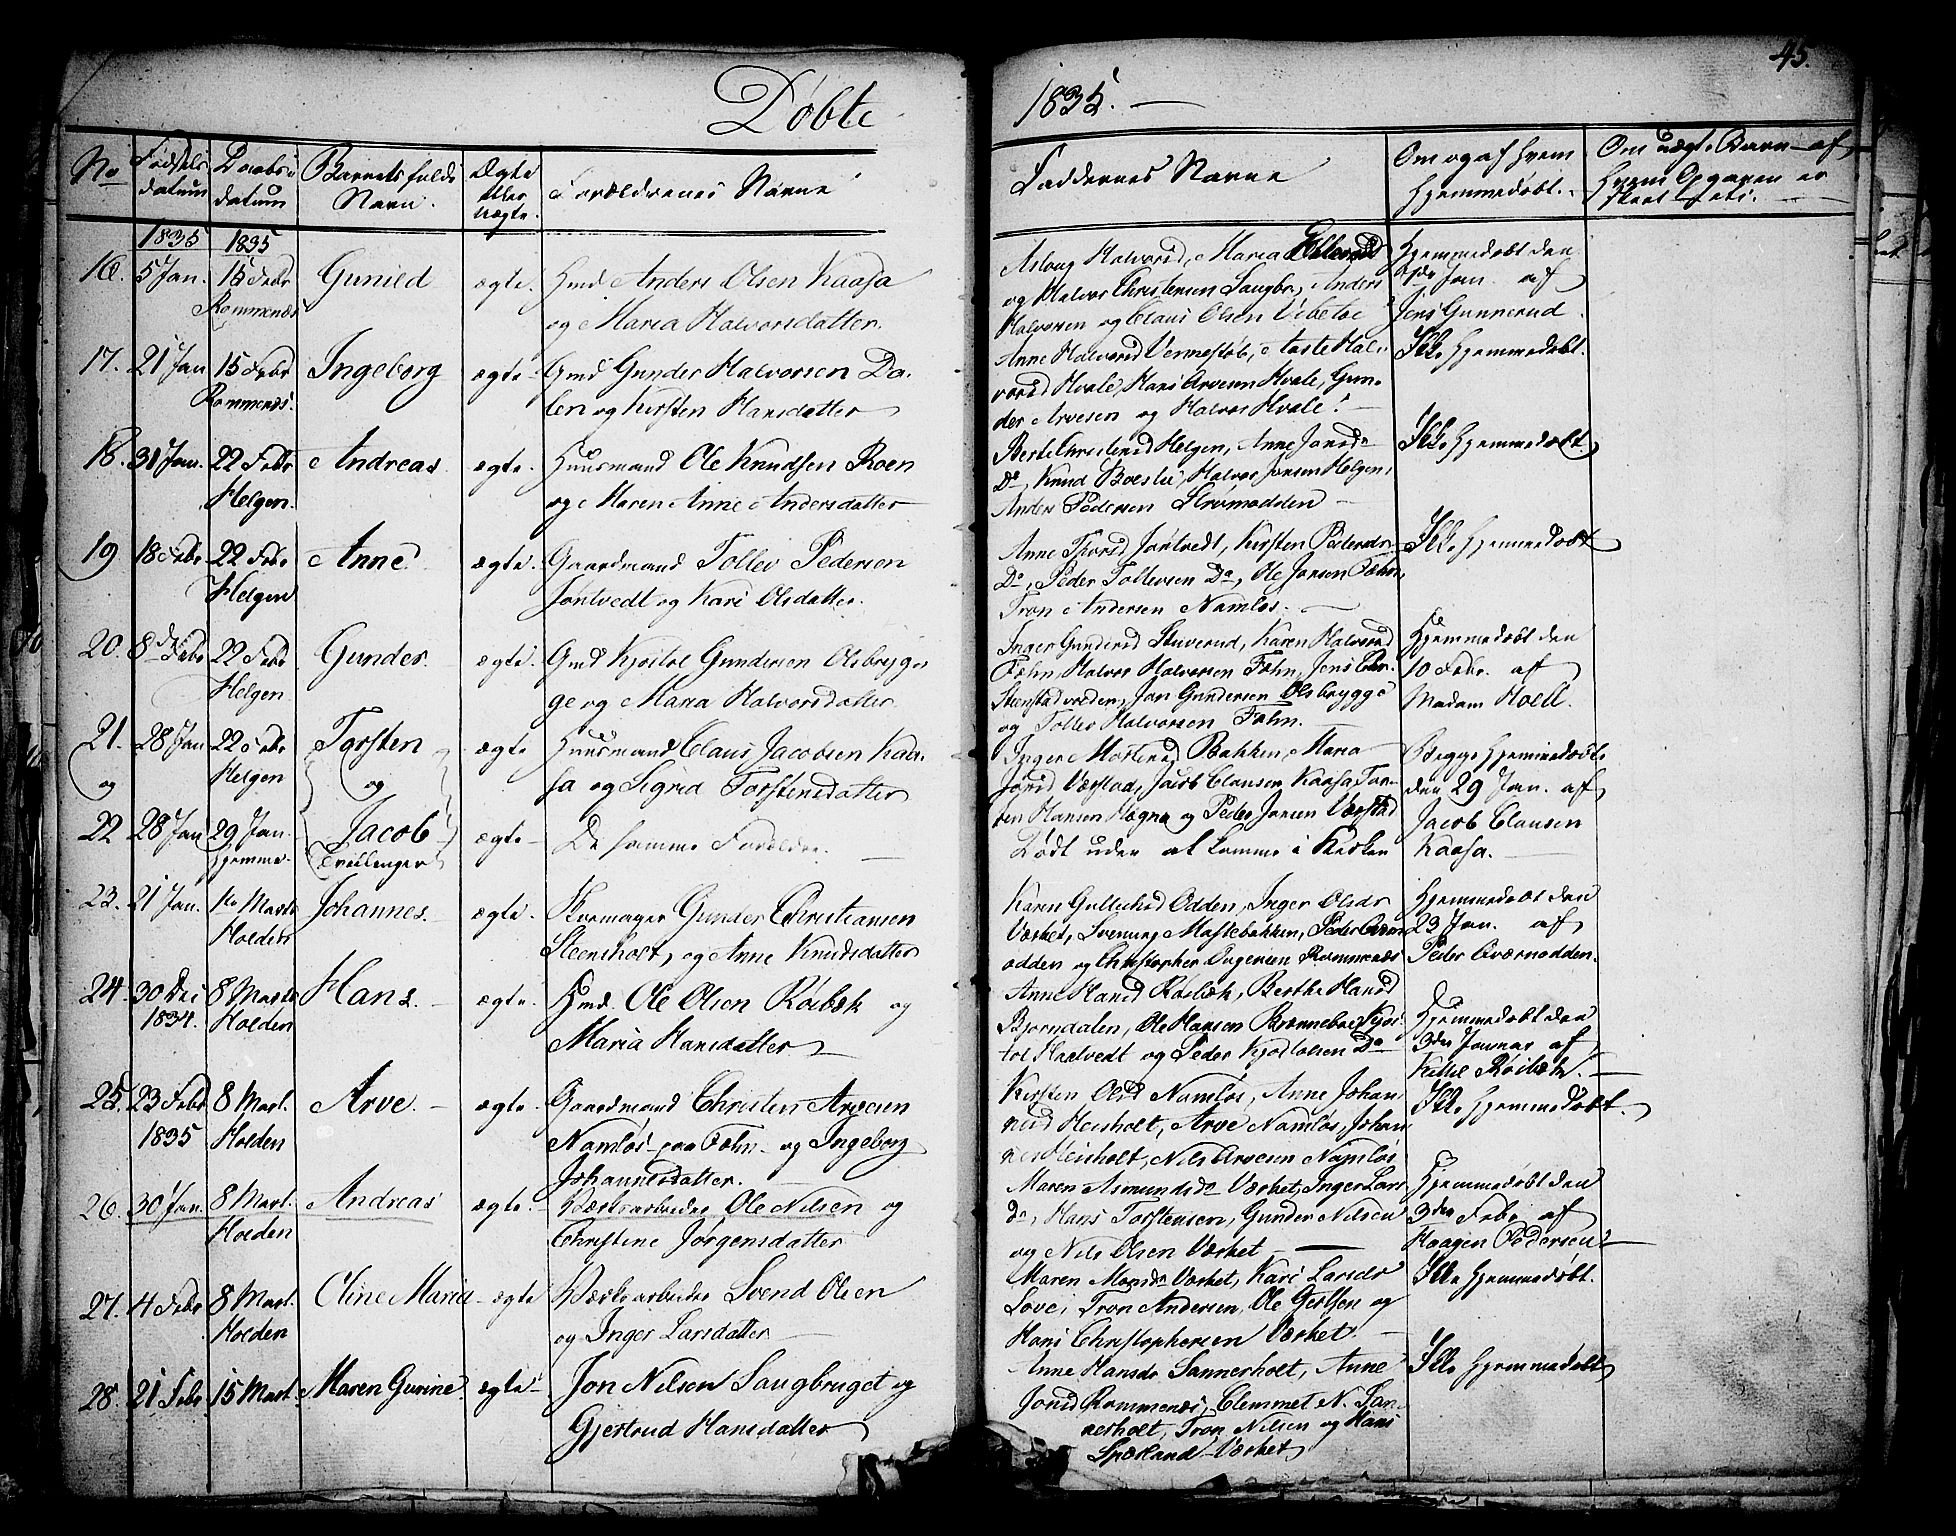 45.
Døbte
1835. —
No
Fødsels
datum
Daabs
datum
Barnets fulde
Navn.
Ægte
eller
uægte.
Forældrenes Navne
Faddernes Navne
Om og af hvem
hjemmedøbt.
Om uægte Barn af
hvem Opgaven er
skeet
1835
1835
16. 5 Jan. 15 Febr Gunild ægte. Hmd Anders Olsen Kaasa
Rommenæs
og Maria Halvorsdatter.
Aslaug Halvorsd, Maria
og Halvor Christensen Saugbr, Anders
Halvorsen og Claus Olsen Vibetoe
Hjemmedøbt den
Jan. af
Jens Gunnerud.
17. 21 Jan 15 Febr Ingeborg ægte Gmd Gunder Halvorsen Da-
Rommenæs.
len og Kirsten Hansdatter
Anne Halvorsd Vennestøb, Aaste Hal-
vorsd Hvale, Hans Arvesen Hvale, Gun-
der Arvesen og Halvor Hvale. —
Ikke hjemmedøbt.
18. 31 Jan. 22 Febr Andreas ægte. Huusmand Ole Knudsen Roen
Helgen.
og Maren Anne Andersdatter
Berte Christensd Helgen, Anne Jonsd
Do, Knud Boeslie, Halvor Jonsen Helgen,
Anders Pedersen Strømodden —
Ikke hjemmedøbt
19 18 Febr 22 Febr Anne ægte. Gaardmand Tollev Pedersen
Helgen
Jontvedt og Kari Olsdatter.
Anne Thorsd Jontvedt, Kirsten Pedersdr
Do, Peder Tollevsen Do, Ole Jonsen Fæhn,
Tron Andersen Namløs. —
Ikke hjemmedøbt
20. 8de Febr 22 Febr Gunder. ægte Gmd Kjøstol Gundersen Olsbryg-
Helgen
ge og Maria Halvorsdatter
Inger Gundersd Stuverud, Karen Halvorsd
Fæhn, Halvor Halvorsen Fæhn, Jens Chr.
Steenstadvreden, Jon Gundersen Olsbrygge
og Tollev Halvorsen Fæhn. —
Hjemmedøbt den
10 Febr. af
Madam Holst.
21. 28 Jan 22 Febr Torsten ægte Huusmand Claus Jacobsen Kaa-
og Helgen og
sa og Sigrid Torstensdatter
22 28 Jan 29 Jan. Jacob ægte — De samme Forældre. —
hjemme. Tvillinger
Inger Mortensd Bakken, Maria
Jonsd Værstad, Jacob Clausen Kaasa, Tor-
sten Hansen Høgna og Peder Jonsen Værstad
Dødt uden at komme i Kirken
Begge hjemmedøbt
den 29 Jan. af
Jacob Clausen
Kaasa. —
23. 21 Jan. 1te Marts Johannes. ægte. Skomager Gunder Christiansen
Holden
Steensholt, og Anne Knudsdatter
Karen Gulliksd Odden, Inger Olsdr
Værket, Svenung Mastebakken, Peder
odden og Christopher Ingersen Rommenæs
Hjemmedøbt den
23 Jan. af
Peder Qværnodden.
24. 30 Dec 8 Marts Hans. — ægte. Hmd. Ole Olsen Röibæk og
1834. Holden
Maria Hansdatter
Anne Hansd Röibæk, Berthe Hansd
Bjørndalen, Ole Hansen Brænneboe, Kjøs-
tol Haatvedt og Peder Kjostolsen Do
Hjemmedøbt den
3die Januar af
Röibæk. —
25. 23 Febr 8 Mart. Arve. — ægte. Gaardmand Christen Arvesen
1835 Holden
Namløs paa Fæhn og Ingeborg
Johannesdatter. —
Kirsten Olsd Namløs, Anne Johan-
nesd Heisholt, Arve Namløs, Johan-
nes Heisholt, Nils Arvesen Namløs
Ikke hjemmedøbt.
26. 30 Jan. 8 Mart. Andreas ægte. Værksarbeider Ole Nilsen og
Holden
Christine Jørgensdatter
Maren Asmundsdr Værket, Inger Lars-
dr, Hans Torstensen, Gunder Nilsen
og Nils Olsen Værket —
Hjemmedøbt den
3die Febr af
Haagen Pedersen. —
27. 4 Febr 8 Mart. Oline Maria ægte Værksarbeider Svend Olsen
Holden
og Inger Larsdatter —
Maren Monsdr Værket, Kari Larsdr
Love, Tron Andersen, Ole Gertsen og
Hans Christophersen Værket. —
Ikke hjemmedøbt.
28. 21 Febr 15 Mart. Maren Gurine ægte. Jon Nilsen Saugbruget og
Gjertrud Hansdatter
Anne Hansdr Sannerholt, Anne
Jonsd Rommenæs, Clemmet N. San-
nerholt, Tron Nilsen og Hans
Spæland Værket
Ikke hjemmedøbt